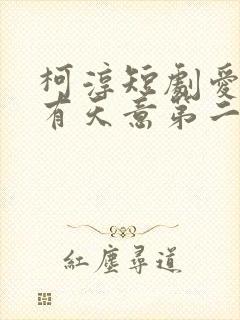 柯淳短劇愛
有天意第二
紅塵尋道